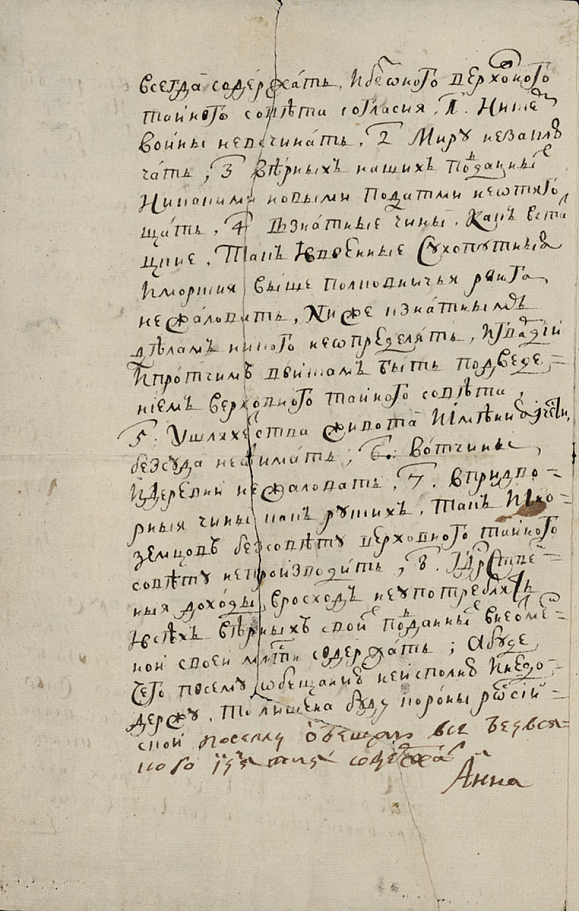 всегда содержать, ибезоного верховного
таиного совѣта согласия, 1. Нискем
воины невсчинать, 2 Миру незаклю
чать, 3 вѣрныхъ нашихъ подданныхъ
Никакими новыми податми неотяго
щать, 4 Взнатные чины, какъ въста
цкие, такъ ивоенные Сухопутныя
Иморския выше полковничья ранга
нежаловать, Ниже кзнатнымъ
дѣламъ никого неопределять, игвардии
Ипротчимъ воискамъ быть подведе-
ниемъ верховного таиного совѣта,
5. Ушляхетства живота иимѣния ичести,
безсуда неотимать, 6. Вотчины
идеревни нежаловать. 7. впридво-
рныя чины какъ руских, такъ ино-
земцовъ безсовѣту верховного таиного
совѣту непроизводить, 8. Гдрстве-
ныя доходы вросходъ неупотреблять
Ивсѣхъ вѣрныхъ своихъ подданныхъ внеотме-
нои своеи млсти содержать; Абуде
чего посему обещанию неисполню инедо-
держу, то лишена буду короны росиі-
скои посему обещаюс все безвся-
кого ізятия содержать
Анна